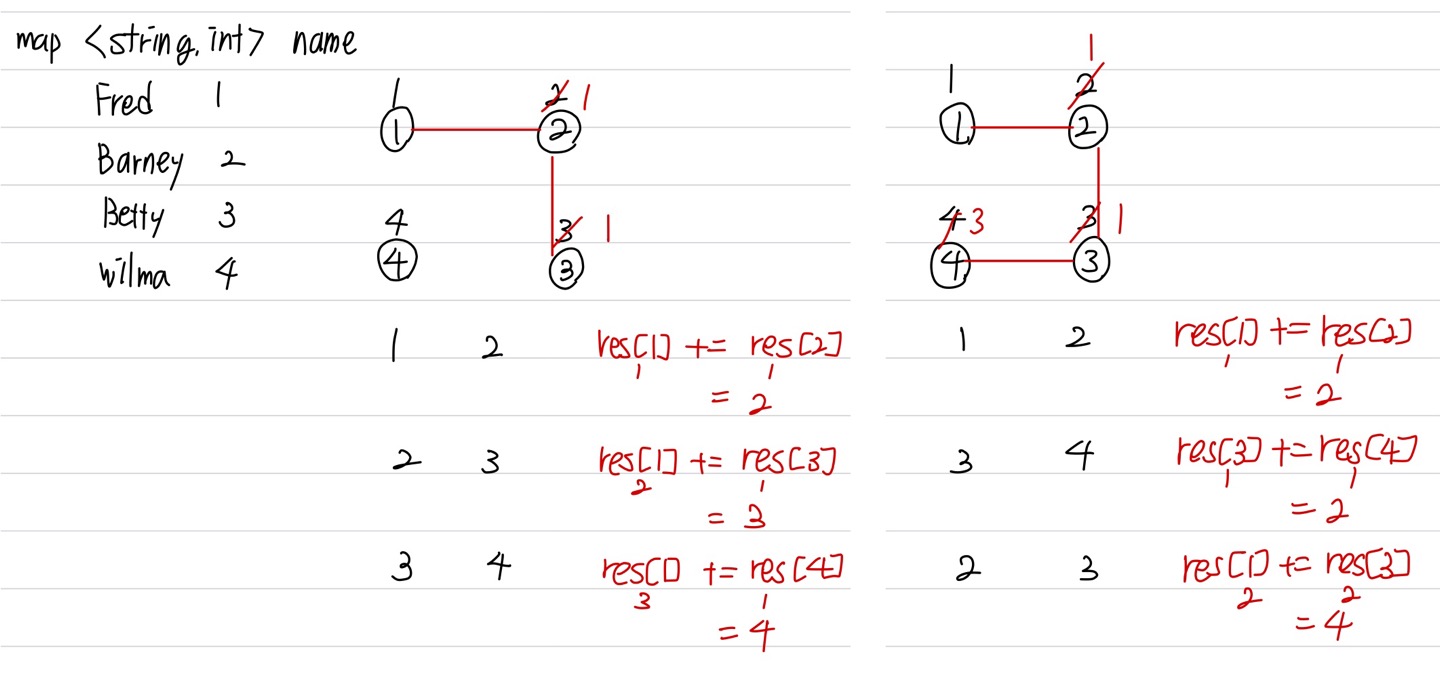 map <string, int> name
Fred 1
Barney 2
Betty 3
wilma 4
1 2 1
1 2
4 3 1
4 3
1 2 res[1] += res[2]
1 1
= 2
2 3 res[1] += res[3]
2 1
= 3
3 4 res[1] += res[4]
3 1
= 4
1
1 2
1 2
4 3 3 1
4 3
1 2 res[1] += res[2]
1 1
= 2
3 4 res[3] += res[4]
1 1
= 2
2 3 res[1] += res[3]
2 2
= 4